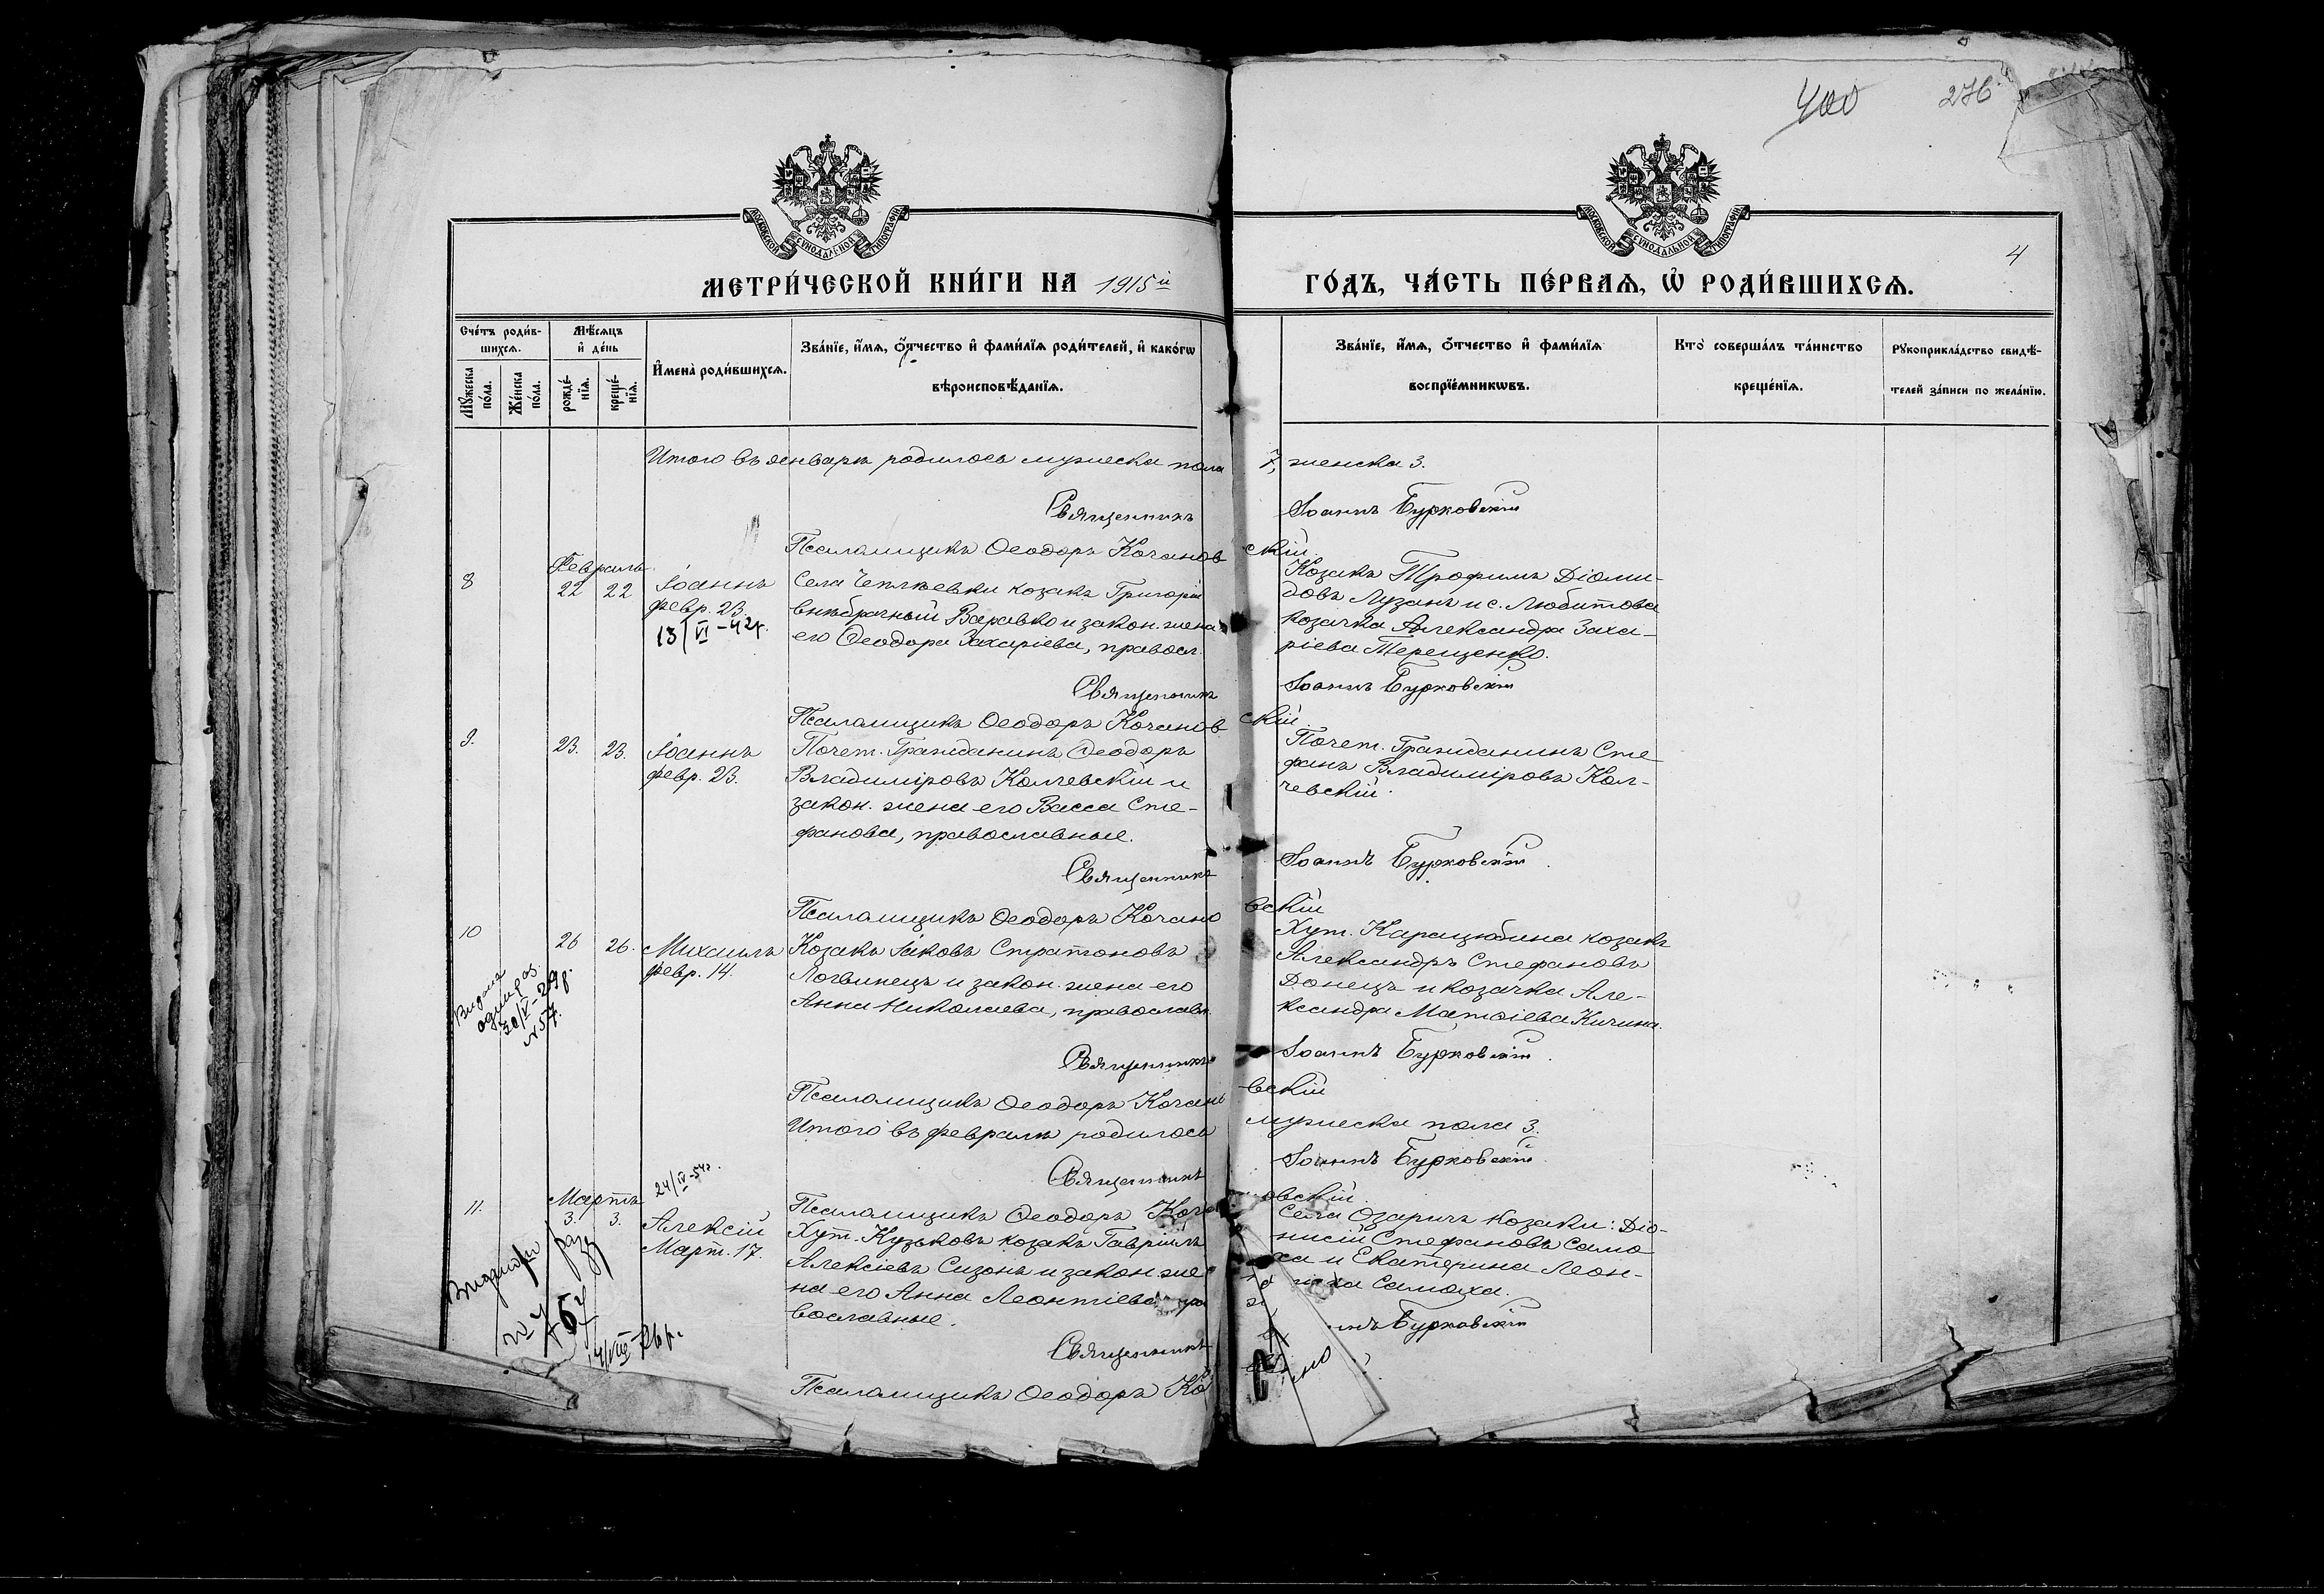 400
276
МОСКОВСКОЙ СѴНОДАЛЬНОЙ ТИПОГРАФІИ
МОСКОВСКОЙ СѴНОДАЛЬНОЙ ТИПОГРАФІИ
4
МЕТРИ́ЧЕСКОЙ КНИ́ГИ НА 1915й
ГО́ДЪ, ЧА́СТЬ ПЕ́РВАѦ, Ѡ҆ РОДИ́ВШИХСѦ.
Сче́тъ роди́в-
шихсѧ.
Мѣ́сѧцъ
и҆ де́нь
Мꙋ́жеска
по́ла.
Же́нска
по́ла.
рожде́-
нїѧ.
креще́-
нїѧ.
И҆мена̀ роди́вшихсѧ.
Зва́нїе, и҆́мѧ, ѻ҆́тчество и҆ фами́лїѧ роди́телей, и҆ како́гѡ
вѣроисповѣ́данїѧ.
Зва́нїе, и҆́мѧ, ѻ҆́тчество и҆ фами́лїѧ
воспрїе́мникѡвъ.
Кто̀ соверша́лъ та́инство
креще́нїѧ.
Рꙋкоприкла́дство свидѣ́-
телей за́писи по жела́нїю.
Итого въ январѣ родилось мужеска пола 7, женска 3.
Священникъ Іоаннъ Бурковскій
Псаломщикъ Ѳеодоръ Кочановскій.
Февраль
8
22 22
Іоаннъ
февр. 23.
13/VI-42г.
Села Чепліевки козакъ Григорій
внѣбрачный Варавко и закон. жена
его Ѳеодора Захаріева, правосл.
Козакъ Трофимъ Діоми-
довъ Лузанъ и с. Любитова
козачка Александра Заха-
ріева Терещенко.
Священникъ Іоаннъ Бурковскій
Псаломщикъ Ѳеодоръ Кочановскій.
9.
23. 23.
Іоаннъ
февр. 23.
Почет. Гражданинъ Ѳеодоръ
Владиміровъ Колчевскій и
закон. жена его Васса Сте-
фанова, православные.
Почет. Гражданинъ Сте
фанъ Владиміровъ Кол-
чевскій.
Священникъ Іоаннъ Бурковскій
Псаломщикъ Ѳеодоръ Кочановскій
10
26 26.
Михаилъ
февр. 14.
Козакъ Іаковъ Стратоновъ
Логвинецъ и закон. жена его
Анна Николаева, православн.
Хут. Карацюбина козакъ
Александръ Стефановъ
Донецъ и козачка Але-
ксандра Матѳіева Кичина.
30/V-29р.
N 57.
Священникъ Іоаннъ Бурковскій
Псаломщикъ Ѳеодоръ Кочановскій
Итого въ февралѣ родилось мужеска пола 3.
Священникъ Іоаннъ Бурковскій
24/IV-54г.
Псаломщикъ Ѳеодоръ Кочановскій.
11.
Мартъ
3. 3.
Алексій
Март. 17.
Хут. Кузьковъ козакъ Гавріилъ
Алексіевъ Сизонъ и закон. же
на его Анна Леонтіева, пра
вославные.
Села Озаричъ козаки: Діо-
нисій Стефановъ Само
ха и Екатерина Леон-
Самоха.
Священникъ Бурковскій
Псаломщикъ Ѳеодоръ Ко